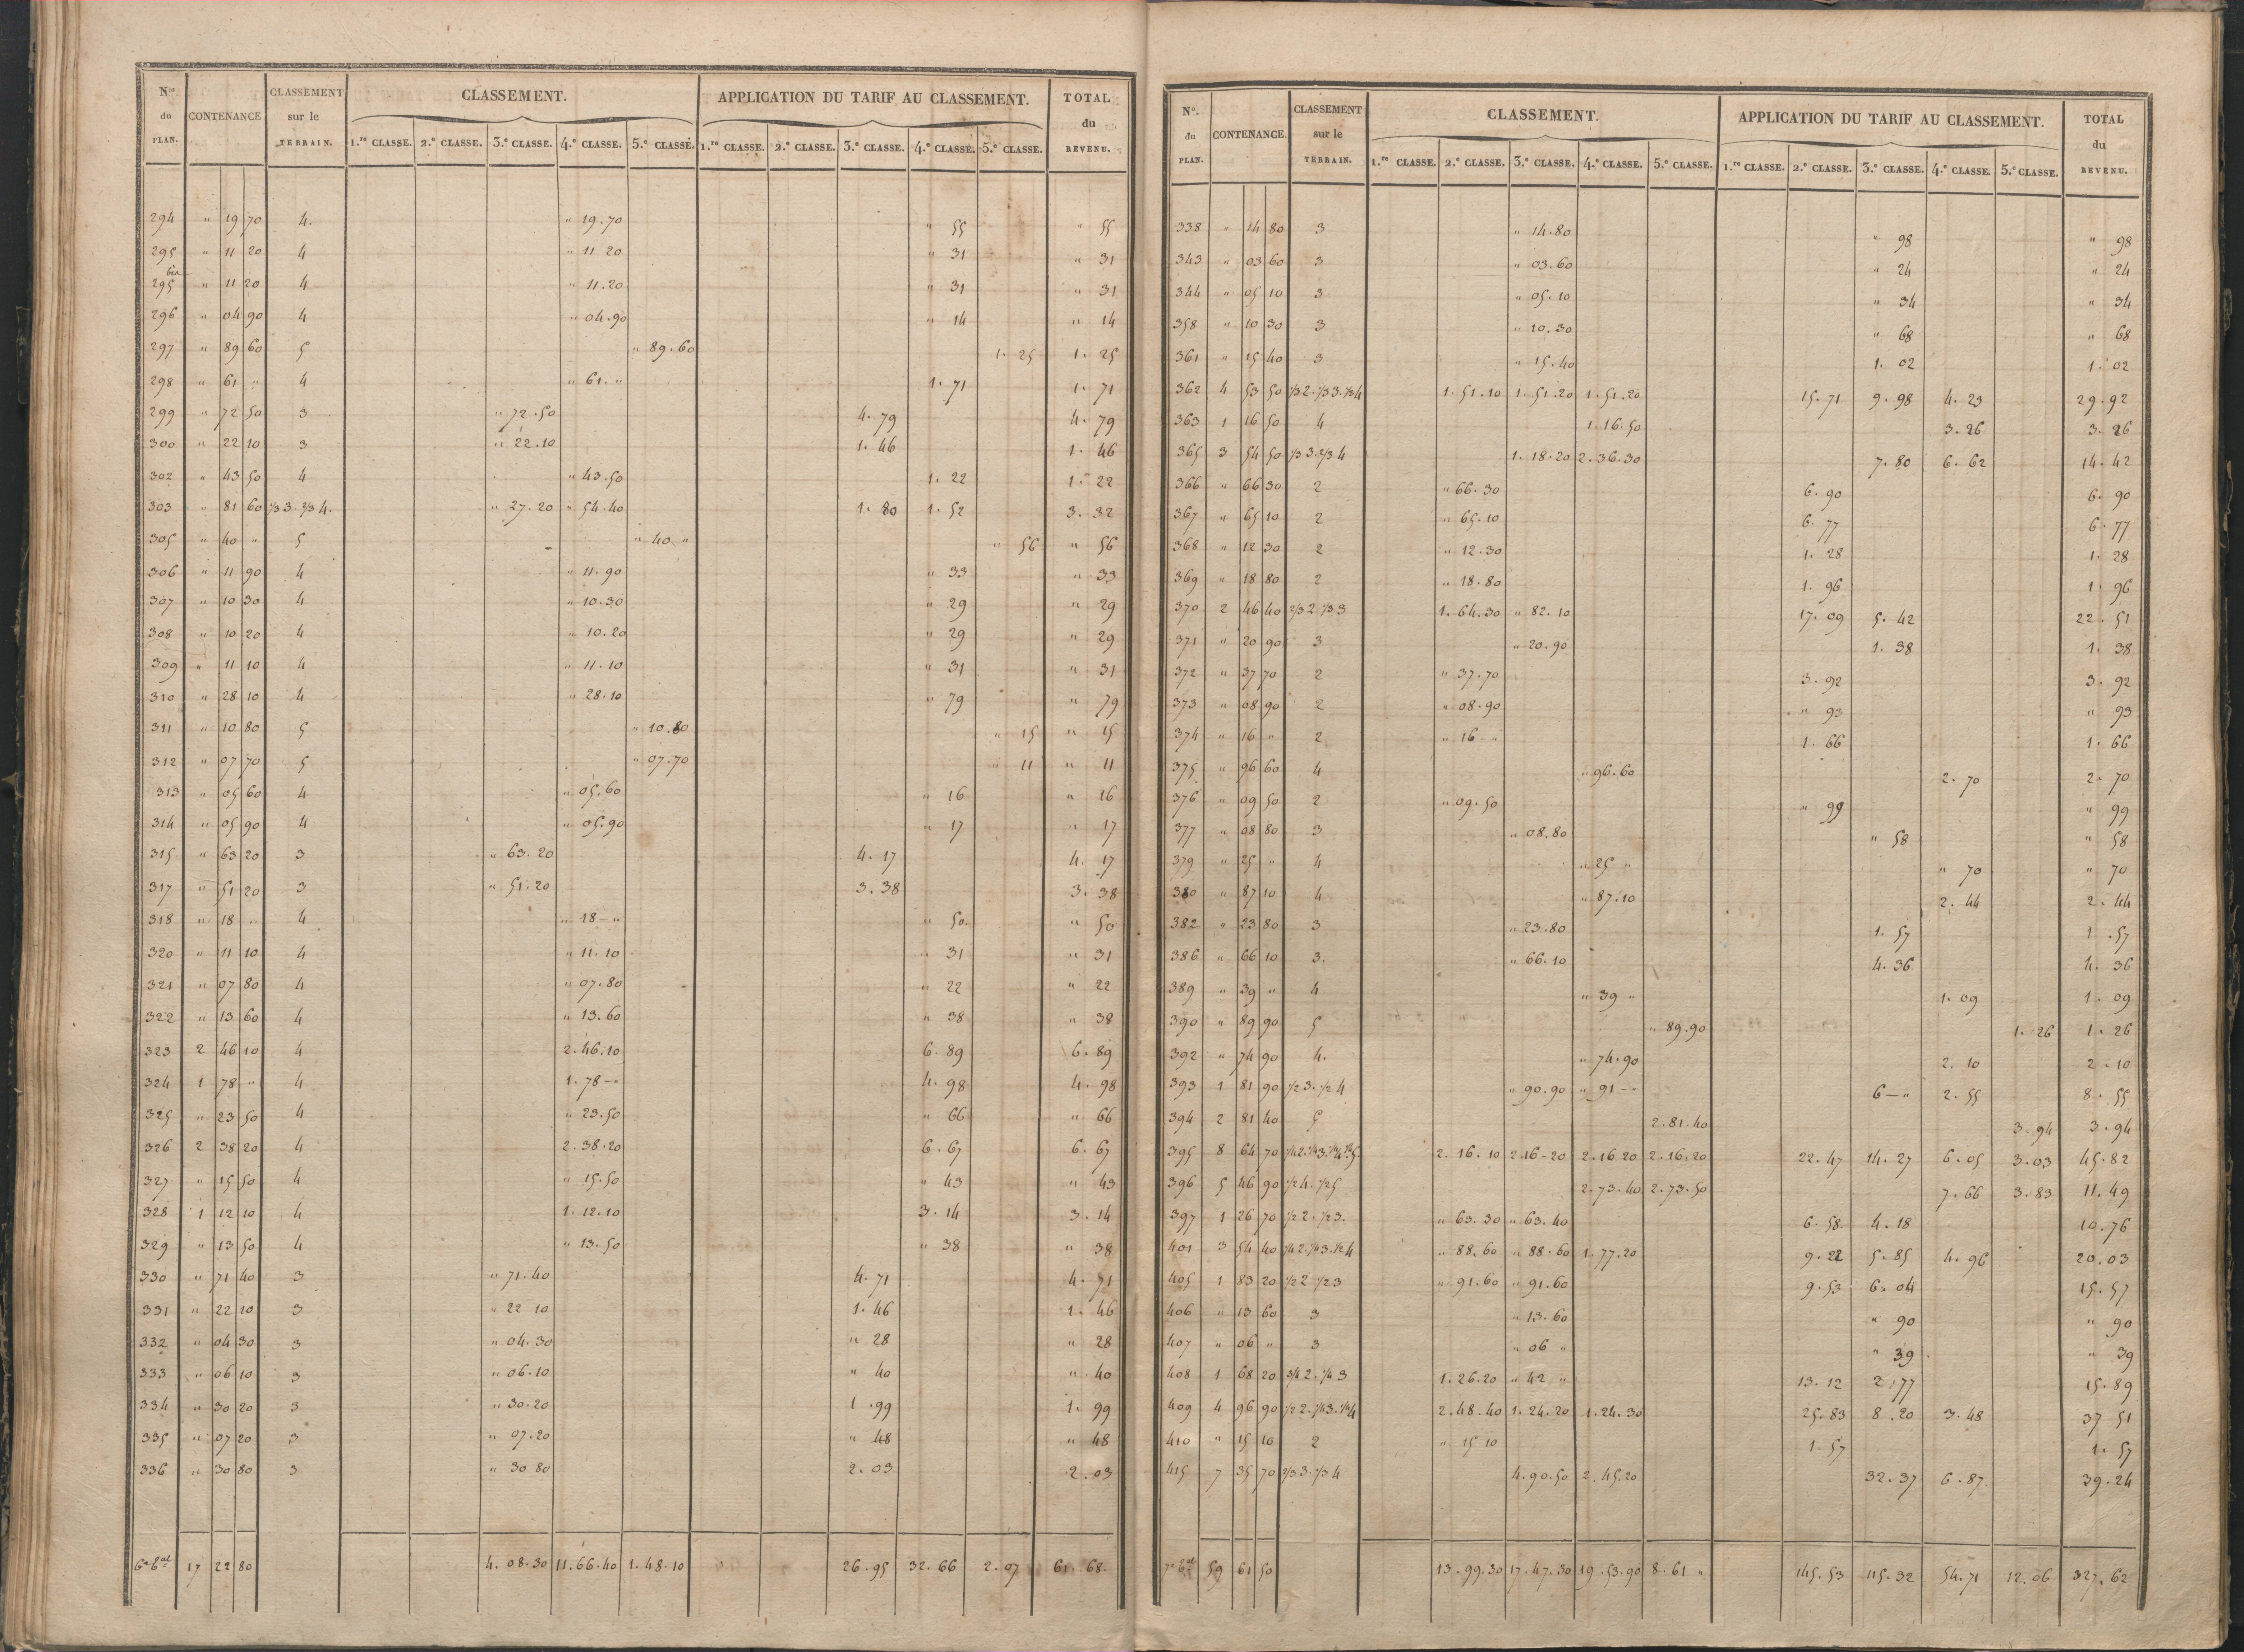 Nos du PLAN. CONTENANCE CLASSEMENT sur le TERRAIN. CLASSEMENT. APPLICATION DU TARIF AU CLASSEMENT. TOTAL du REVENU.
1.re CLASSE. 2.e CLASSE. 3.e CLASSE. 4.e CLASSE. 5.e CLASSE. 1.re CLASSE. 2.e CLASSE. 3.e CLASSE. 4.e CLASSE. 5.e CLASSE.
294 " 19 70 4. " 19.70 " 55 " 55
295 " 11 20 4 " 11 20 " 31 " 31
295 bis " 11 20 4 " 11.20 " 31 " 31
296 " 04 90 4 " 04.90 " 14 " 14
297 " 89 60 5 " 89.60 1. 25 1. 25
298 " 61 " 4 " 61. " 1. 71 1. 71
299 " 72 50 3 " 72.50 4. 79 4. 79
300 " 22 10 3 " 22.10 1. 46 1. 46
302 " 43 50 4 " 43.50 1. 22 1. 22
303 " 81 60 1/3 3. 2/3 4. " 27.20 " 54.40 1. 80 1. 52 3. 32
305 " 40 " 5 " 40 " " 56 " 56
306 " 11 90 4 " 11.90 " 33 " 33
307 " 10 30 4 " 10.30 " 29 " 29
308 " 10 20 4 " 10.20 " 29 " 29
309 " 11 10 4 " 11.10 " 31 " 31
310 " 28 10 4 " 28.10 " 79 " 79
311 " 10 80 5 " 10.80 " 15 " 15
312 " 07 70 5 " 07.70 " 11 " 11
313 " 05 60 4 " 05.60 " 16 " 16
314 " 05 90 4 " 05.90 " 17 " 17
315 " 63 20 3 " 63.20 4. 17 4. 17
317 " 51 20 3 " 51.20 3. 38 3. 38
318 " 18 " 4 " 18 - " " 50. " 50
320 " 11 10 4 " 11.10 " 31 " 31
321 " 07 80 4 " 07.80 " 22 " 22
322 " 13 60 4 " 13.60 " 38 " 38
323 2 46 10 4 2.46.10 6. 89 6. 89
324 1 78 " 4 1.78 - " 4. 98 4. 98
325 " 23 50 4 " 23.50 " 66 " 66
326 2 38 20 4 2.38.20 6. 67 6. 67
327 " 15 50 4 " 15.50 " 43 " 43
328 1 12 10 4 1.12.10 3. 14 3. 14
329 " 13 50 4 " 13.50 " 38 " 38
330 " 71 40 3 " 71.40 4. 71 4. 71
331 " 22 10 3 " 22 10 1. 46 1. 46
332 " 04 30 3 " 04.30 " 28 " 28
333 " 06 10 3 " 06.10 " 40 " 40
334 " 30 20 3 " 30.20 1 .99 1. 99
335 " 07 20 3 " 07.20 " 48 " 48
336 " 30 80 3 " 30 80 2. 03 2. 03
17 22 80 4. 08.30 11.66.40 1.48.10 26.95 32.66 2. 07 61. 68.
No. du PLAN. CONTENANCE. CLASSEMENT sur le TERRAIN. CLASSEMENT. APPLICATION DU TARIF AU CLASSEMENT. TOTAL du REVENU.
1.re CLASSE. 2.e CLASSE. 3.e CLASSE. 4.e CLASSE. 5.e CLASSE. 1.re CLASSE. 2.e CLASSE. 3.e CLASSE. 4.e CLASSE. 5.e CLASSE.
338 " 14 80 3 " 14.80 " 98 " 98
343 " 03 60 3 " 03.60 " 24 " 24
344 " 05 10 3 " 05.10 " 34 " 34
358 " 10 30 3 " 10.30 " 68 " 68
361 " 15 40 3 " 15.40 1. 02 1. 02
362 4 53 50 1/3 2. 1/3 3. 1/3 4 1.51.10 1.51.20 1.51.20 15.71 9.98 4. 23 29.92
363 1 16 50 4 1.16.50 3. 26 3. 26
365 3 54 50 1/3 3. 2/3 4 1.18.20 2.36.30 7.80 6.62 14.42
366 " 66 30 2 " 66.30 6. 90 6. 90
367 " 65 10 2 " 65.10 6. 77 6. 77
368 " 12 30 2 " 12.30 1. 28 1. 28
369 " 18 80 2 " 18.80 1. 96 1. 96
370 2 46 40 2/3 2 1/3 3 1.64.30 " 82.10 17.09 5. 42 22. 51
371 " 20 90 3 " 20.90 1. 38 1. 38
372 " 37 70 2 " 37.70 3. 92 3. 92
373 " 08 90 2 " 08.90 " 93 " 93
374 " 16 " 2 " 16 - " 1. 66 1. 66
375 " 96 60 4 " 96.60 2. 70 2. 70
376 " 09 50 2 " 09.50 " 99 " 99
377 " 08 80 3 " 08.80 " 58 " 58
379 " 25 " 4 " 25 " " 70 " 70
380 " 87 10 4 " 87.10 2. 44 2. 44
382 " 23 80 3 " 23.80 1. 57 1 .57
386 " 66 10 3. " 66.10 4. 36 4. 36
389 " 39 " 4 " 39 " 1. 09 1. 09
390 " 89 90 5 " 89.90 1. 26 1. 26
392 " 74 90 4. " 74.90 2. 10 2. 10
393 1 81 90 1/2 3. 1/2 4 " 90.90 " 91 - " 6 - " 2. 55 8. 55
394 2 81 40 5 2.81.40 3.94 3.94
395 8 64 70 1/4 2. 1/4 3. 1/4 4. 1/4 5. 2. 16. 10 2.16-20 2.16 20 2.16.20 22. 47 14. 27 6.05 3.03 45.82
396 5 46 90 1/2 4. 1/2 5 2.73.40 2.73.50 7.66 3.83 11.49
397 1 26 70 1/2 2. 1/2 3. " 63.30 " 63.40 6. 58 4.18 10.76
401 3 54 40 1/4 2. 1/4 3. 1/2 4 " 88.60 " 88.60 1.77.20 9.22 5.85 4. 96 20.03
405 1 83 20 1/2 2 1/2 3 " 91.60 " 91.60 9.53 6. 04 15.57
406 " 13 60 3 " 13.60 " 90 " 90
407 " 06 " 3 " 06 " " 39 " 39
408 1 68 20 3/4 2. 1/4 3 1.26.20 " 42 " 13. 12 2. 77 15.89
409 4 96 90 1/2 2. 1/4 3. 1/4 4 2.48.40 1.24.20 1.24.30 25.83 8 .20 3.48 37 51
410 " 15 10 2 " 15 10 1. 57 1. 57
415 7 35 70 2/3 3. 1/3 4 4.90.50 2.45.20 32.37 6.87 39.24
59 61 50 13.99.30 17.47.30 19.53.90 8.61 " 145.53 115.32 54.71 12.06 327.62